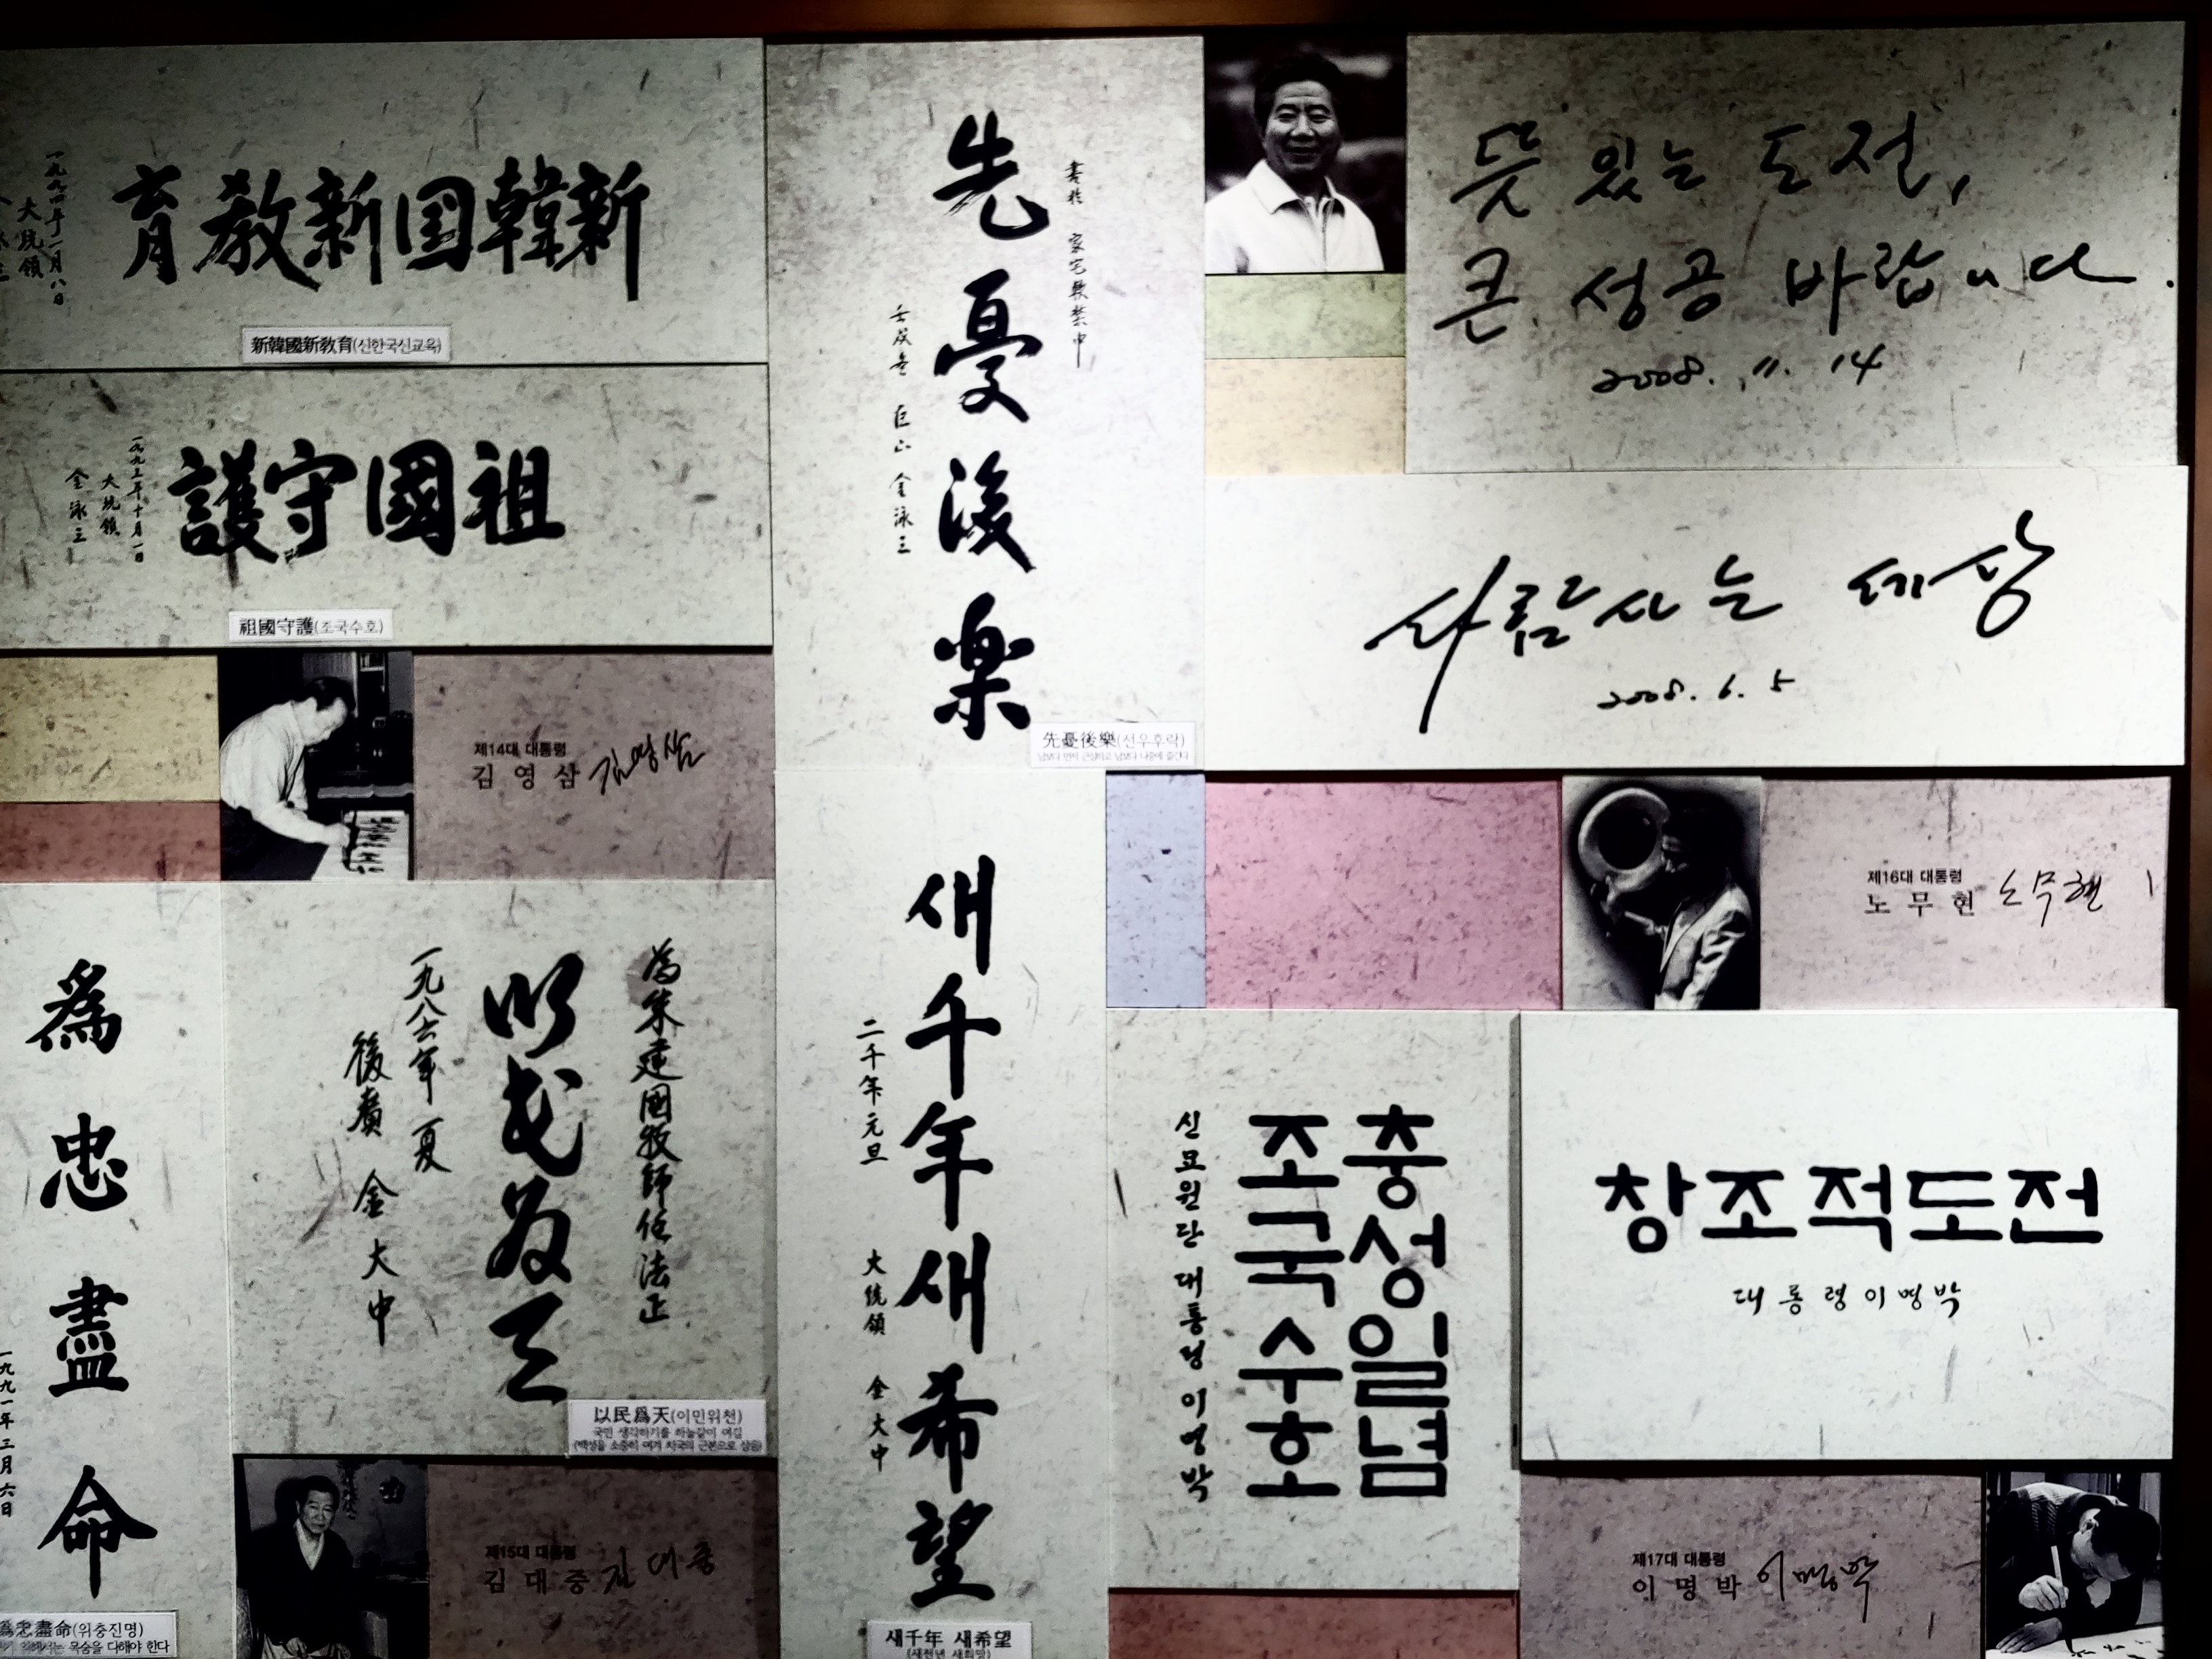 新韓国新教育
一九九四年一月八日
大統領
新韓國新敎育(신한국신교육)
祖國守護
一九九三年十月一日
大統領
金泳三
祖國守護(조국수호)
제14대 대통령
김영삼 김영삼
先憂後楽
書於 家宅軟禁中
壬戌冬 巨山 金泳三
先憂後樂(선우후락)
남보다 먼저 근심하고 남보다 나중에 즐긴다
뜻 있는 도전,
큰 성공 바랍니다.
2008. 11. 14
사람사는 세상
2008. 6. 5
제16대 대통령
노무현 노무현
爲忠盡命
一九九一年三月六日
爲忠盡命(위충진명)
목숨을 다해야 한다
為朱建國牧師任法正
以民為天
一九八六年 夏
後廣 金大中
以民爲天(이민위천)
국민 생각하기를 하늘같이 여김
(백성을 소중히 여겨 치국의 근본으로 삼음)
제15대 대통령
김대중 김대중
새千年새希望
二千年元旦 大統領 金大中
새千年 새希望
(새천년 새희망)
충성일념
조국수호
신묘원단 대통령 이명박
창조적도전
대통령이명박
제17대 대통령
이명박 이명박